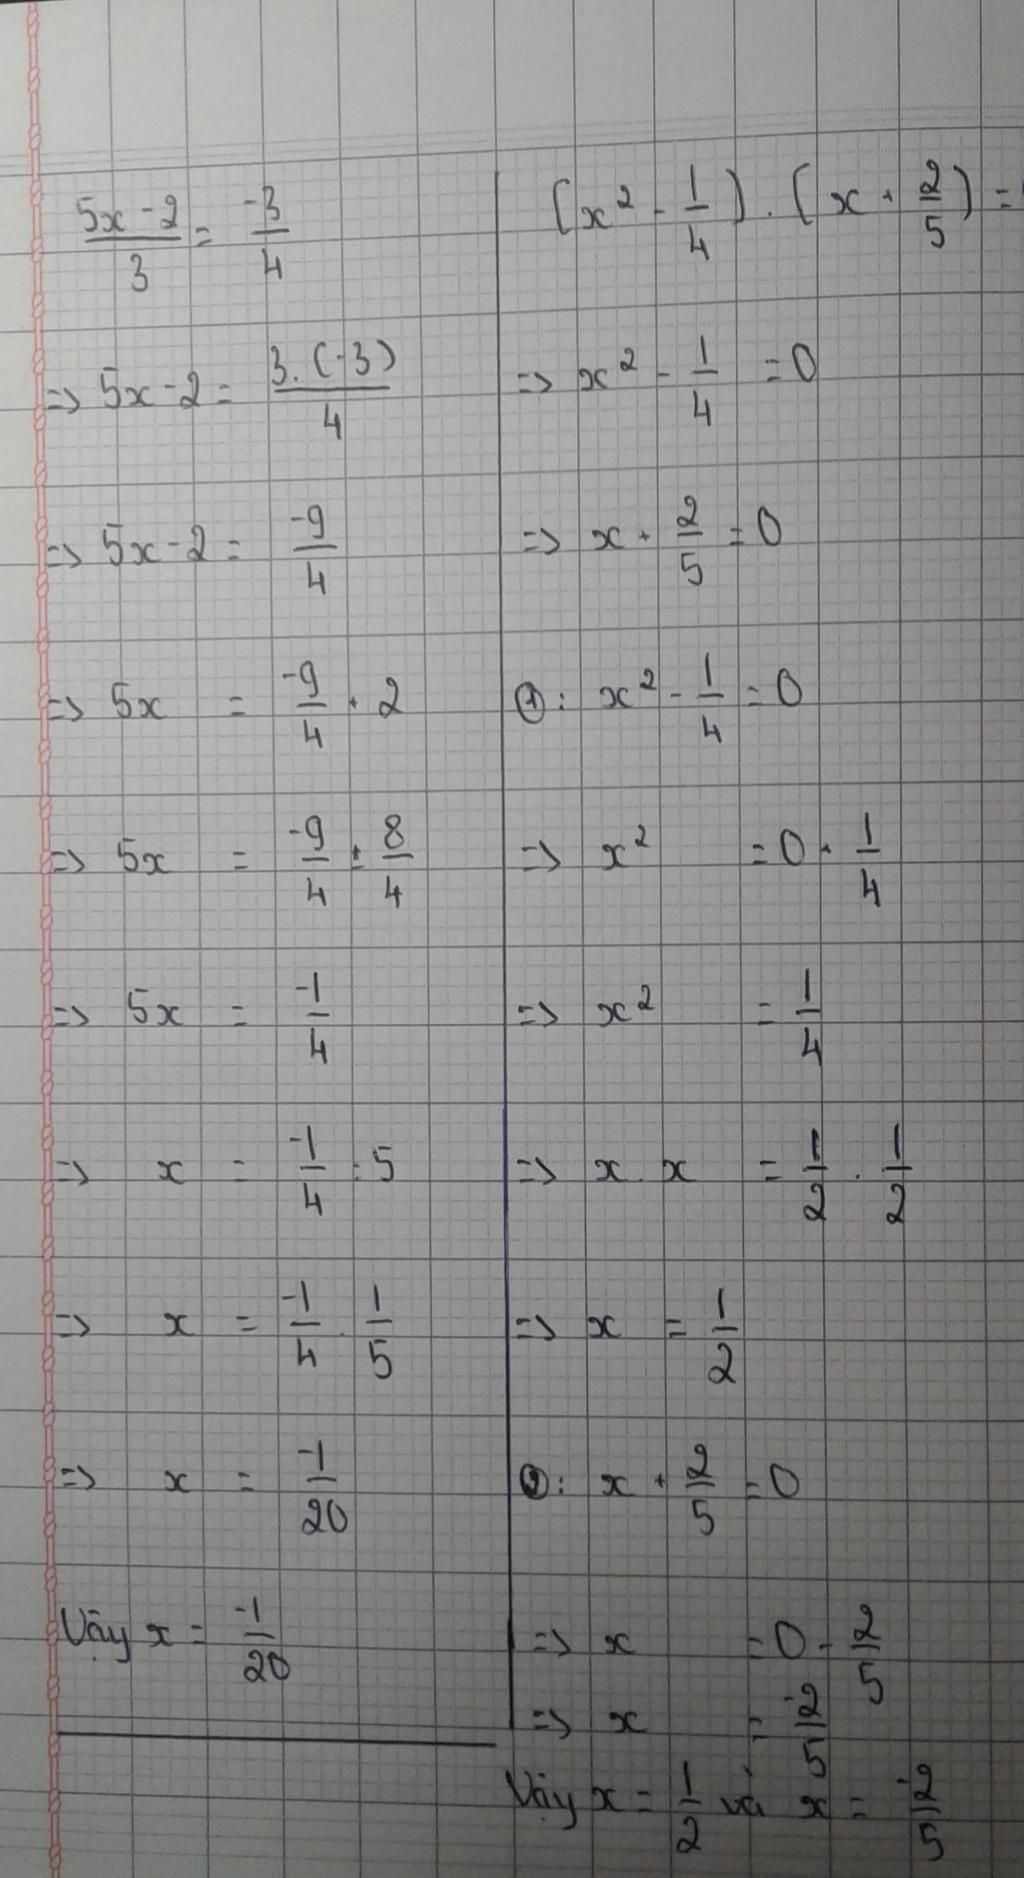 5x - 2 / 3 = -3 / 4
=> 5x - 2 = 3. (-3) / 4
=> 5x - 2 = -9 / 4
=> 5x = -9 / 4 + 2
=> 5x = -9 / 4 + 8 / 4
=> 5x = -1 / 4
=> x = -1 / 4 : 5
=> x = -1 / 4 . 1 / 5
=> x = -1 / 20
Vậy x = -1 / 20
(x² - 1 / 4) . (x + 2 / 5) =
=> x² - 1 / 4 = 0
=> x + 2 / 5 = 0
①: x² - 1 / 4 = 0
=> x² = 0 + 1 / 4
=> x² = 1 / 4
=> x . x = 1 / 2 . 1 / 2
=> x = 1 / 2
②: x + 2 / 5 = 0
=> x = 0 - 2 / 5
=> x = -2 / 5
Vậy x = 1 / 2 và x = -2 / 5